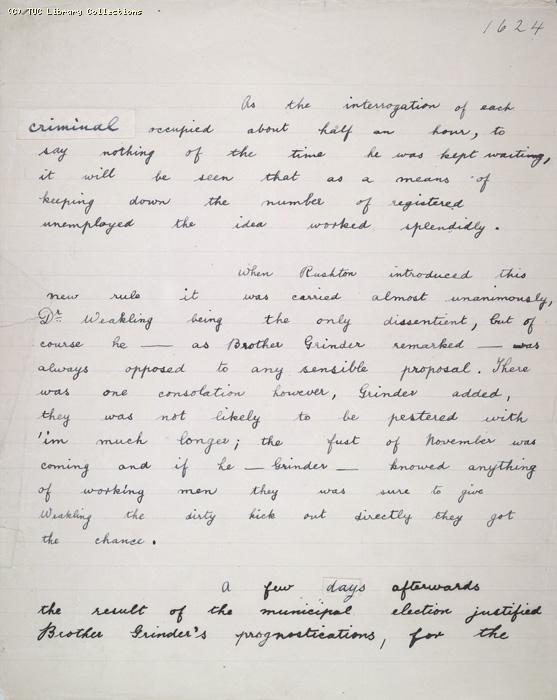 (C) TUC Library Collections
1624
As the interrogation of each
criminal occupied about half an hour, to
say nothing of the time he was kept waiting,
it will be seen that as a means of
keeping down the number of registered
unemployed the idea worked splendidly.
When Rushton introduced this
new rule it was carried almost unanimously,
Dr. Weakling being the only dissentient, but of
course he — as Brother Grinder remarked — was
always opposed to any sensible proposal. There
was one consolation however, Grinder added,
they was not likely to be pestered with
'im much longer; the fust of November was
coming and if he — Grinder — knowed anything
of working men they was sure to give
Weakling the dirty kick out directly they got
the chance.
A few days afterwards
the result of the municipal election justified
Brother Grinder's prognostications, for the